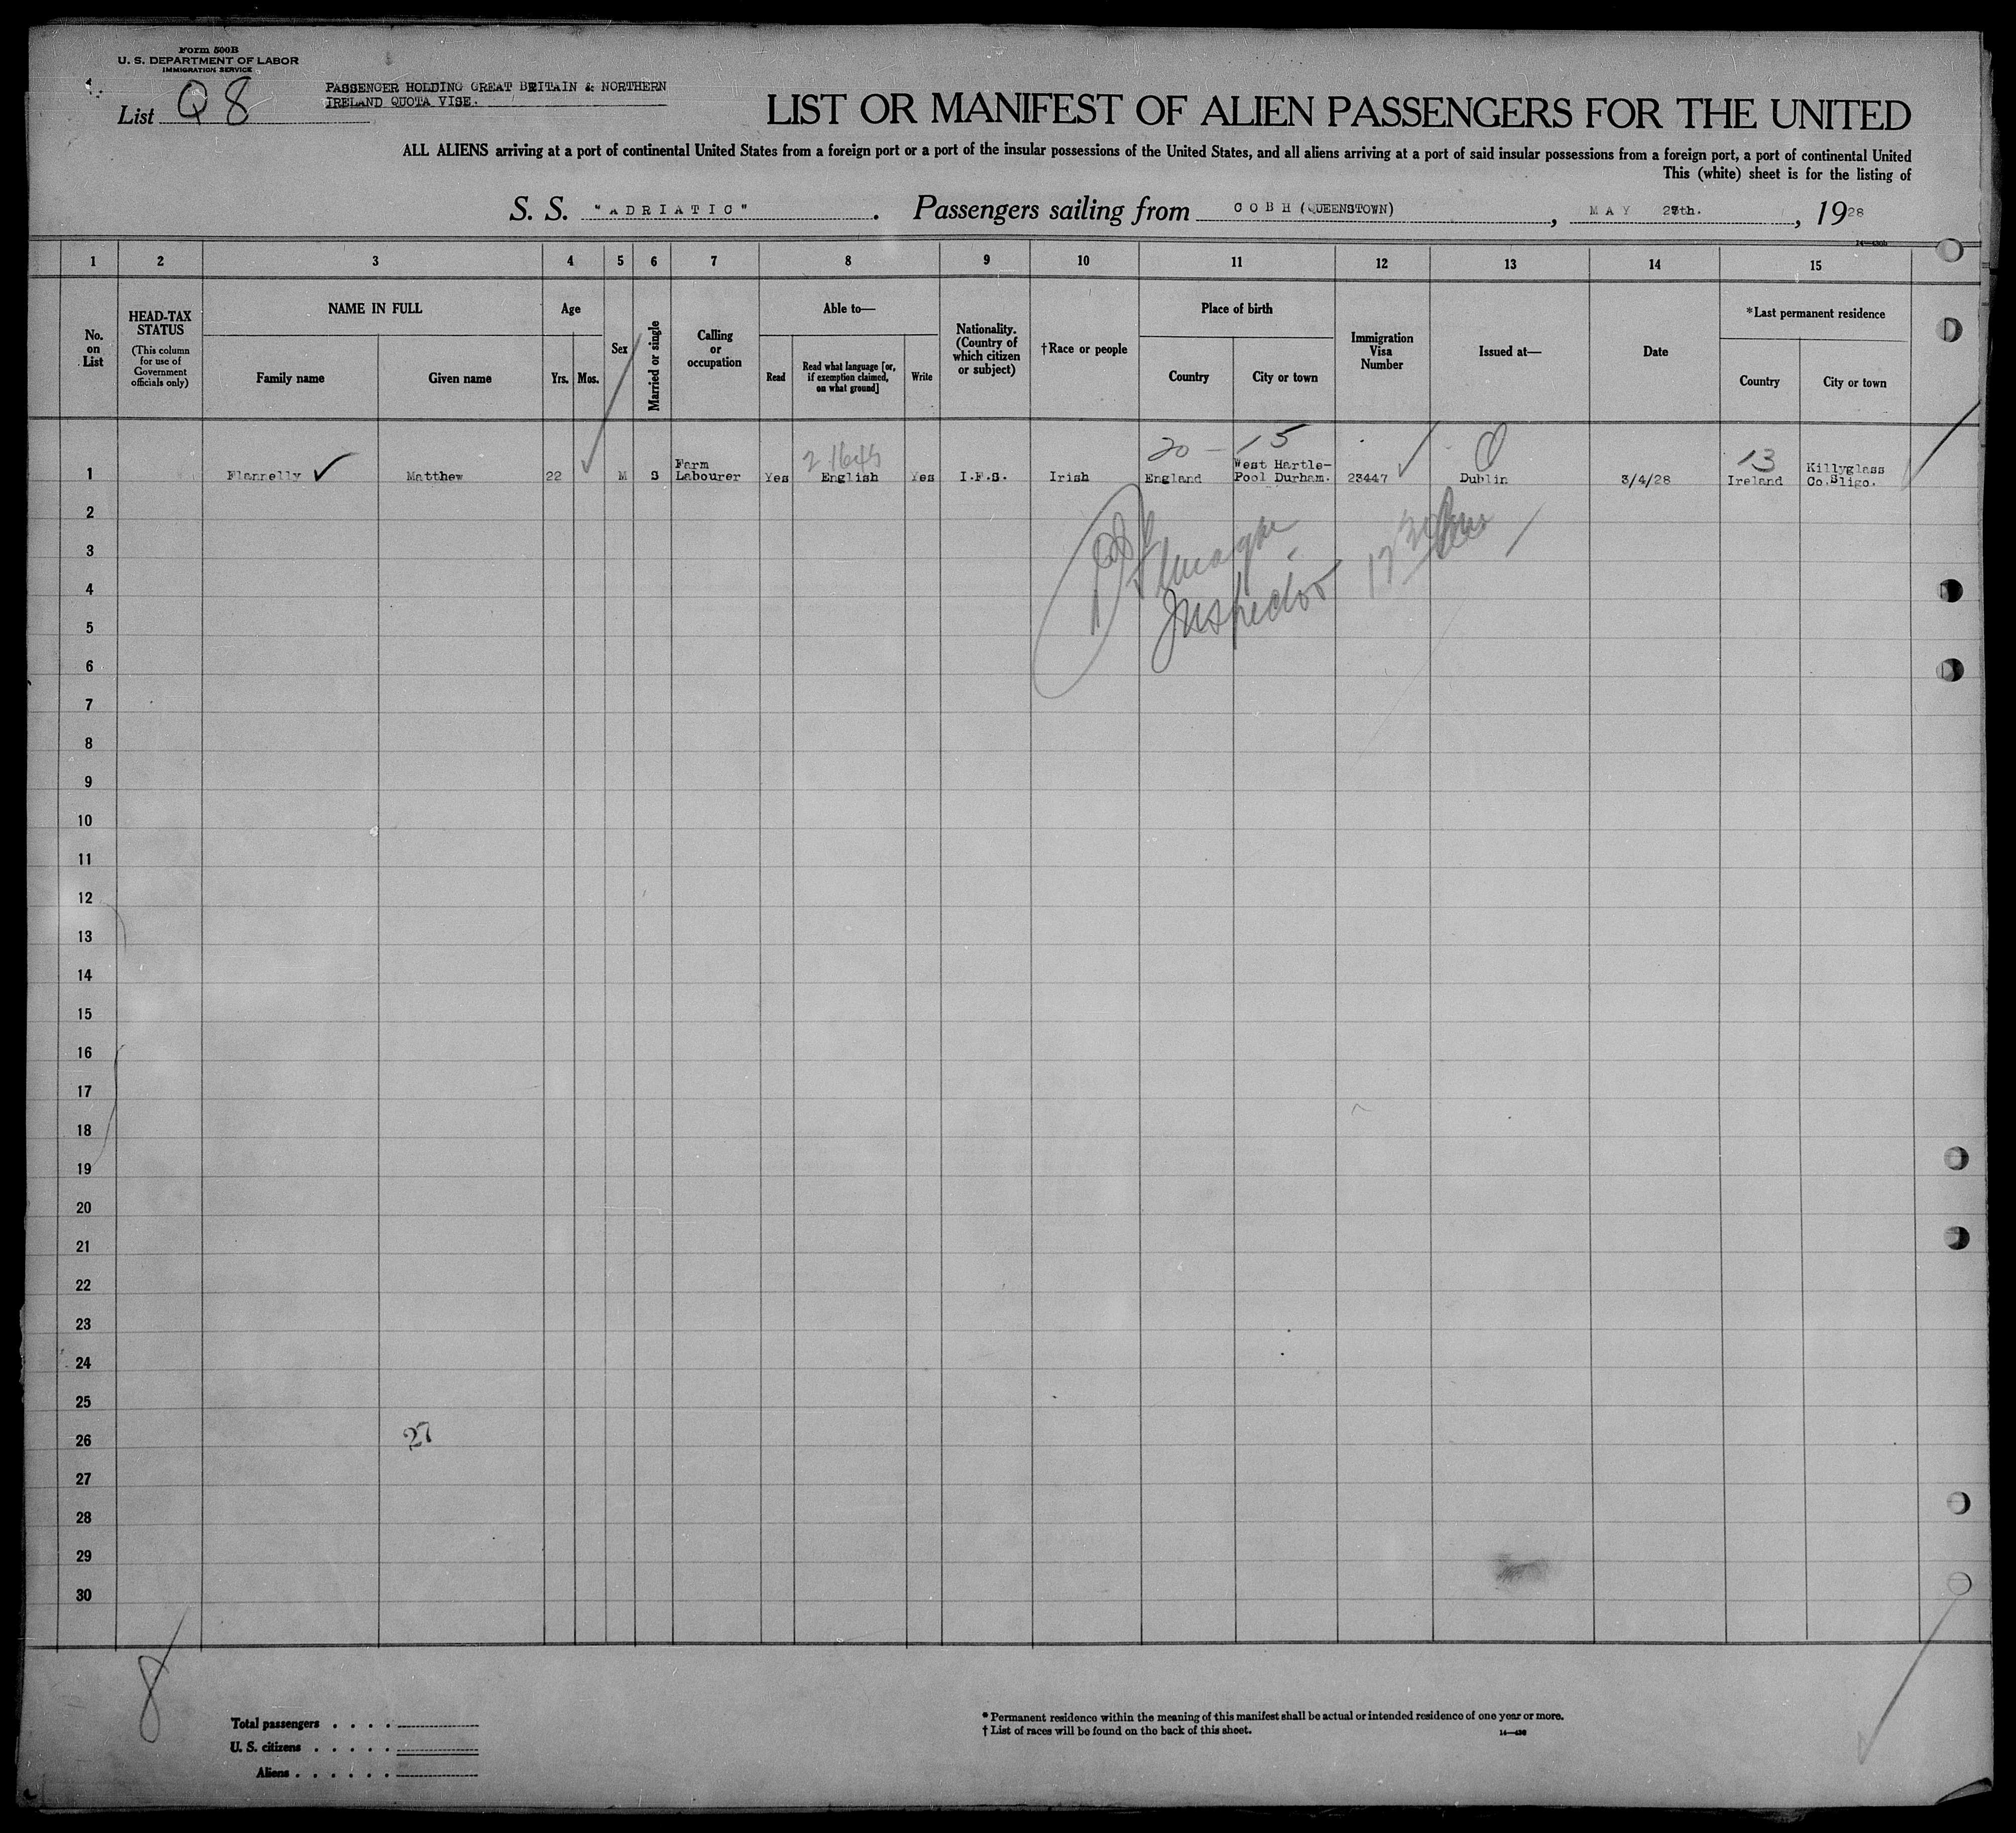 Form 500B
U. S. DEPARTMENT OF LABOR
IMMIGRATION SERVICE
List Q8
PASSENGER HOLDING GREAT BRITAIN & NORTHERN
IRELAND QUOTA VISE.
LIST OR MANIFEST OF ALIEN PASSENGERS FOR THE UNITED
ALL ALIENS arriving at a port of continental United States from a foreign port or a port of the insular possessions of the United States, and all aliens arriving at a port of said insular possessions from a foreign port, a port of continental United
This (white) sheet is for the listing of
S. S. "ADRIATIC". Passengers sailing from COBH (QUEENSTOWN), MAY 27th., 1928
1 2 3 4 5 6 7 8 9 10 11 12 13 14 15
No. on List
HEAD-TAX STATUS
(This column for use of Government officials only)
NAME IN FULL
Family name
Given name
Age
Yrs.
Mos.
Sex
Married or single
Calling or occupation
Able to—
Read
Read what language [or, if exemption claimed, on what ground]
Write
Nationality. (Country of which citizen or subject)
†Race or people
Place of birth
Country
City or town
Immigration Visa Number
Issued at—
Date
*Last permanent residence
Country
City or town
20 - 15
13
1 Flannelly Matthew 22 M S Farm Labourer Yes English Yes I.F.S. Irish England West Hartle-Pool Durham. 23447 Dublin 3/4/28 Ireland Killyglass Co.Sligo.
2
3
4
Inspector
5
6
7
8
9
10
11
12
13
14
15
16
17
18
19
20
21
22
23
24
25
26
27
27
28
29
30
8
Total passengers . . . .
U. S. citizens . . . . .
Aliens . . . . . .
* Permanent residence within the meaning of this manifest shall be actual or intended residence of one year or more.
† List of races will be found on the back of this sheet.